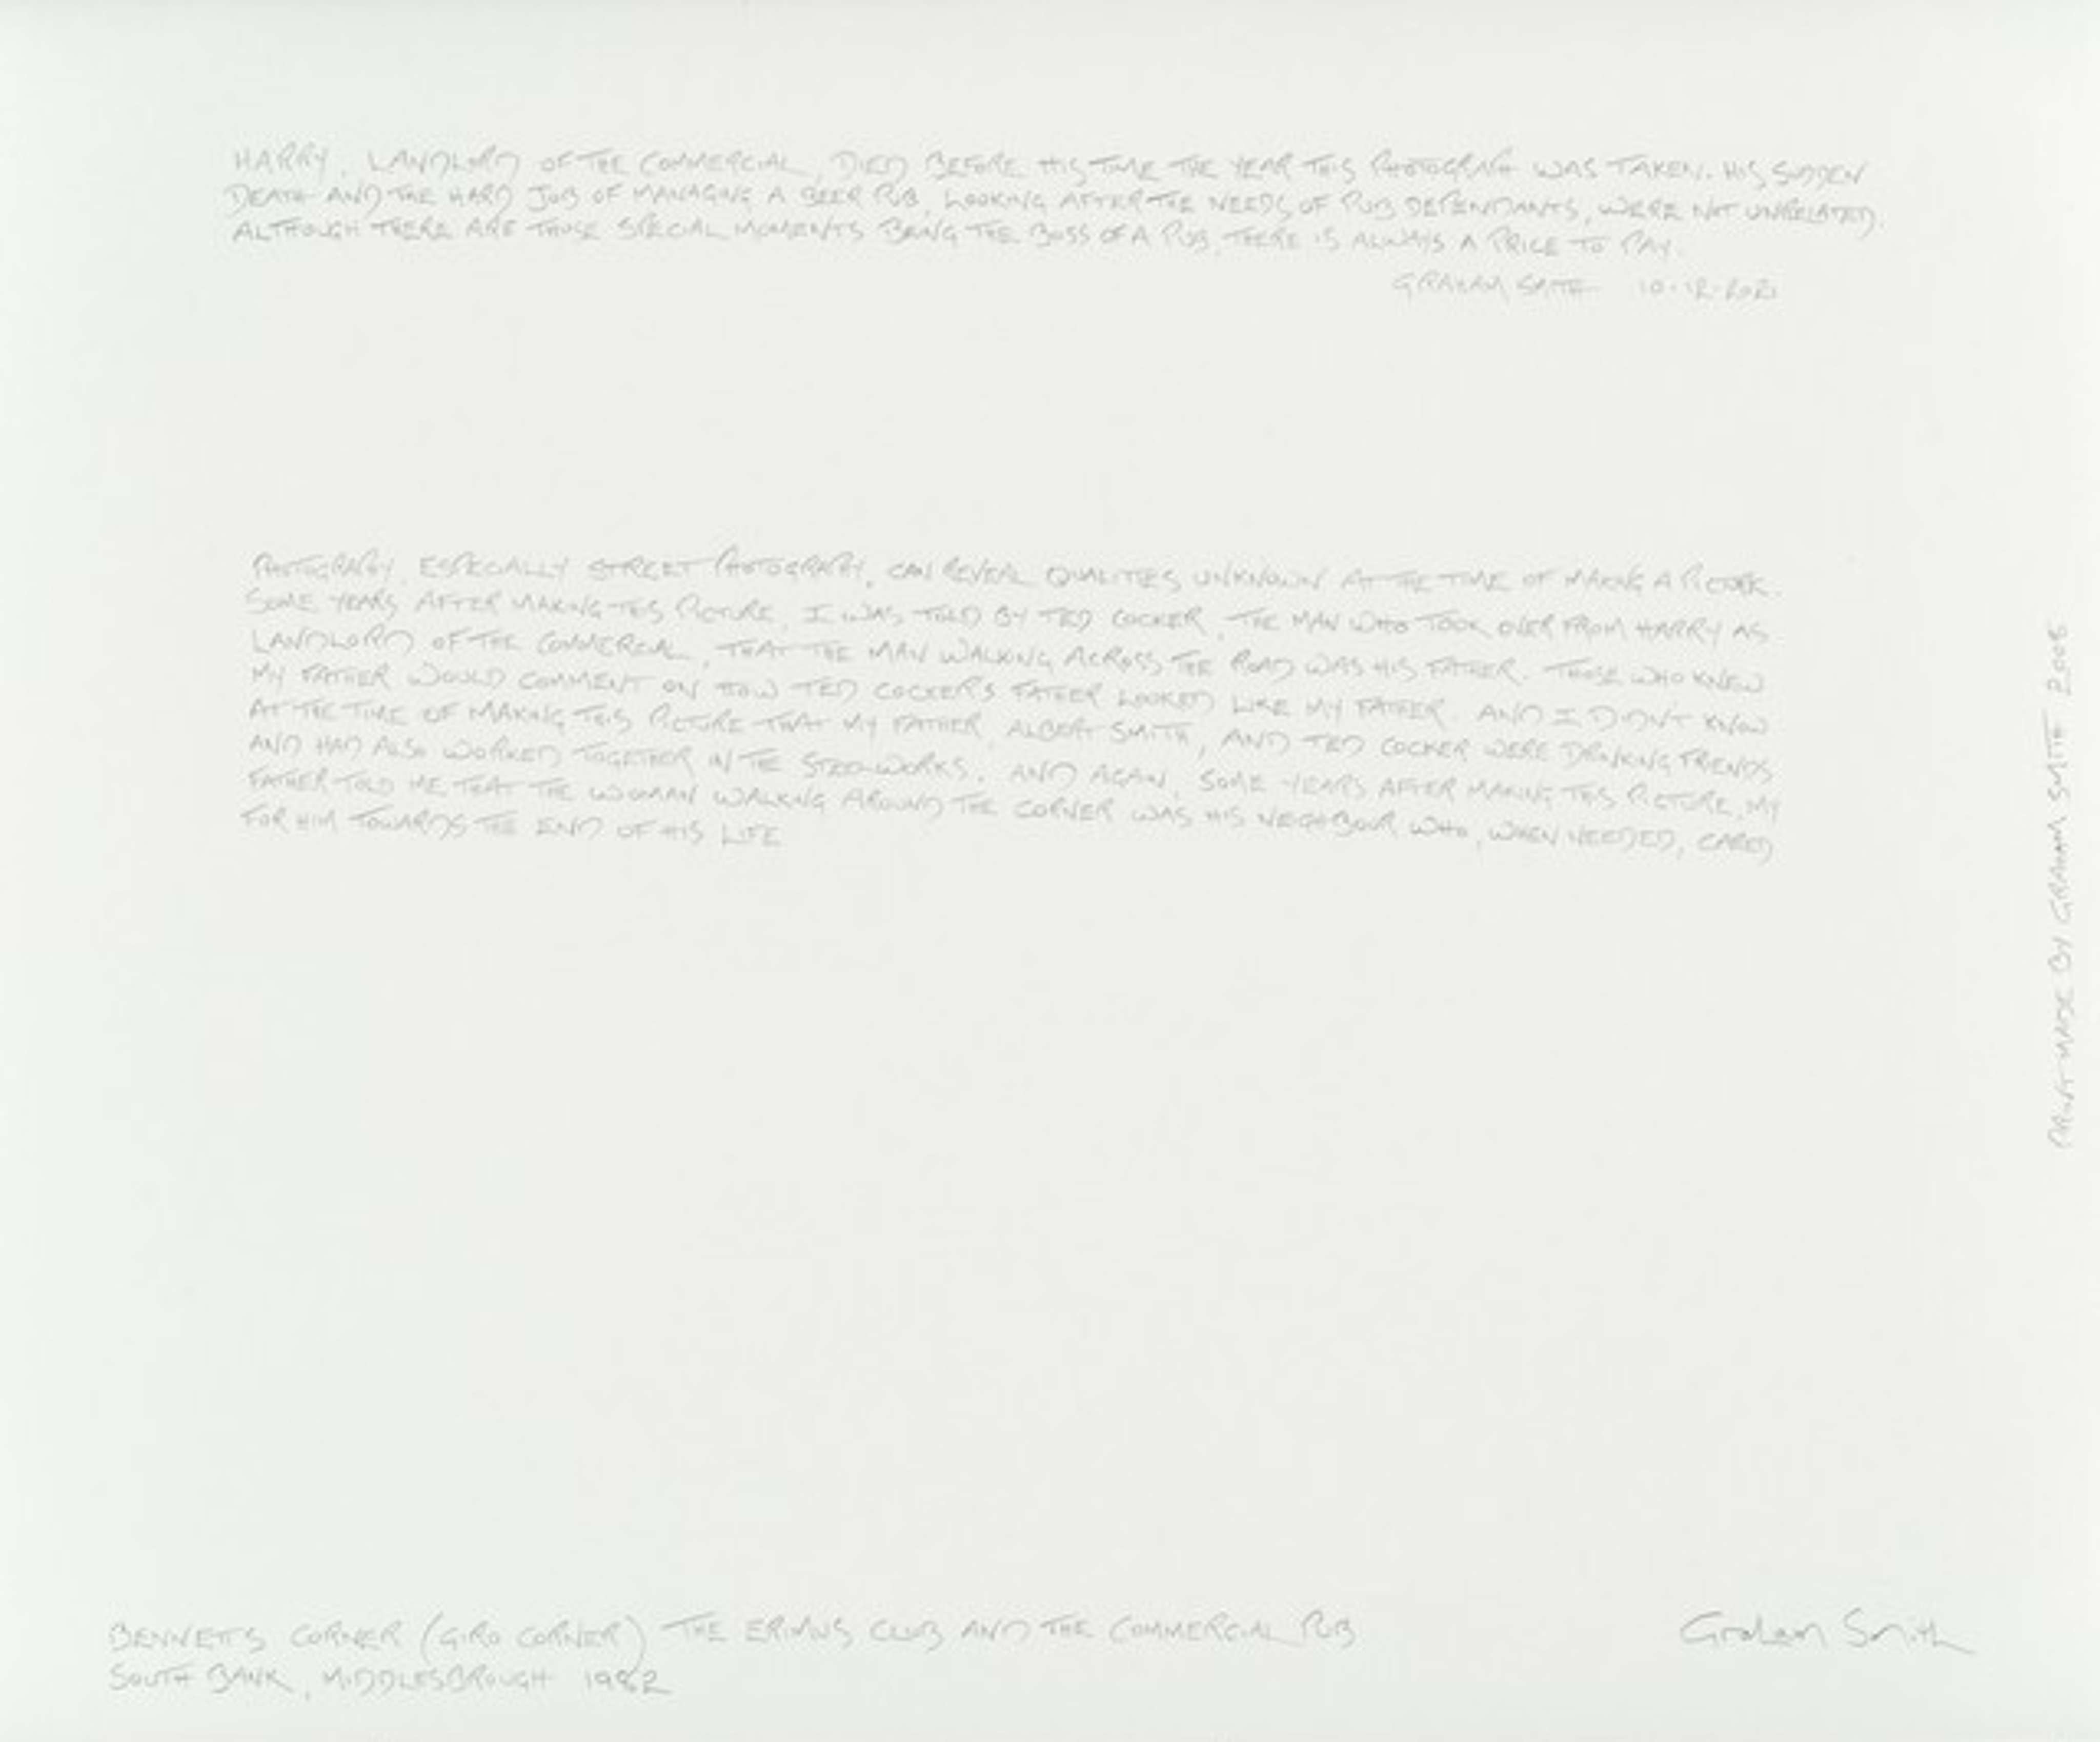 HARRY, LANDLORD OF THE COMMERCIAL, DIED BEFORE HIS TIME THE YEAR THIS PHOTOGRAPH WAS TAKEN. HIS SUDDEN
DEATH AND THE HARD JOB OF MANAGING A BEER PUB, LOOKING AFTER THE NEEDS OF PUB DEPENDANTS, WERE NOT UNRELATED.
ALTHOUGH THERE ARE THOSE SPECIAL MOMENTS BEING THE BOSS OF A PUB, THERE IS ALWAYS A PRICE TO PAY.
GRAHAM SMITH 10.12.2021
PHOTOGRAPHY, ESPECIALLY STREET PHOTOGRAPHY, CAN REVEAL QUALITIES UNKNOWN AT THE TIME OF MAKING A PICTURE.
SOME YEARS AFTER MAKING THIS PICTURE, I WAS TOLD BY TED COCKER, THE MAN WHO TOOK OVER FROM HARRY AS
LANDLORD OF THE COMMERCIAL, THAT THE MAN WALKING ACROSS THE ROAD WAS HIS FATHER. THOSE WHO KNEW
MY FATHER WOULD COMMENT ON HOW TED COCKERS FATHER LOOKED LIKE MY FATHER. AND I DIDN'T KNOW
AT THE TIME OF MAKING THIS PICTURE THAT MY FATHER, ALBERT SMITH, AND TED COCKER WERE DRINKING FRIENDS
AND HAD ALSO WORKED TOGETHER IN THE STEELWORKS. AND AGAIN, SOME YEARS AFTER MAKING THIS PICTURE, MY
FATHER TOLD ME THAT THE WOMAN WALKING AROUND THE CORNER WAS HIS NEIGHBOUR WHO, WHEN NEEDED, CARED
FOR HIM TOWARDS THE END OF HIS LIFE
PRINT MADE BY GRAHAM SMITH 2008
BENNETTS CORNER (GIRO CORNER) THE ERIMUS CLUB AND THE COMMERCIAL PUB
SOUTH BANK, MIDDLESBROUGH 1982
Graham Smith